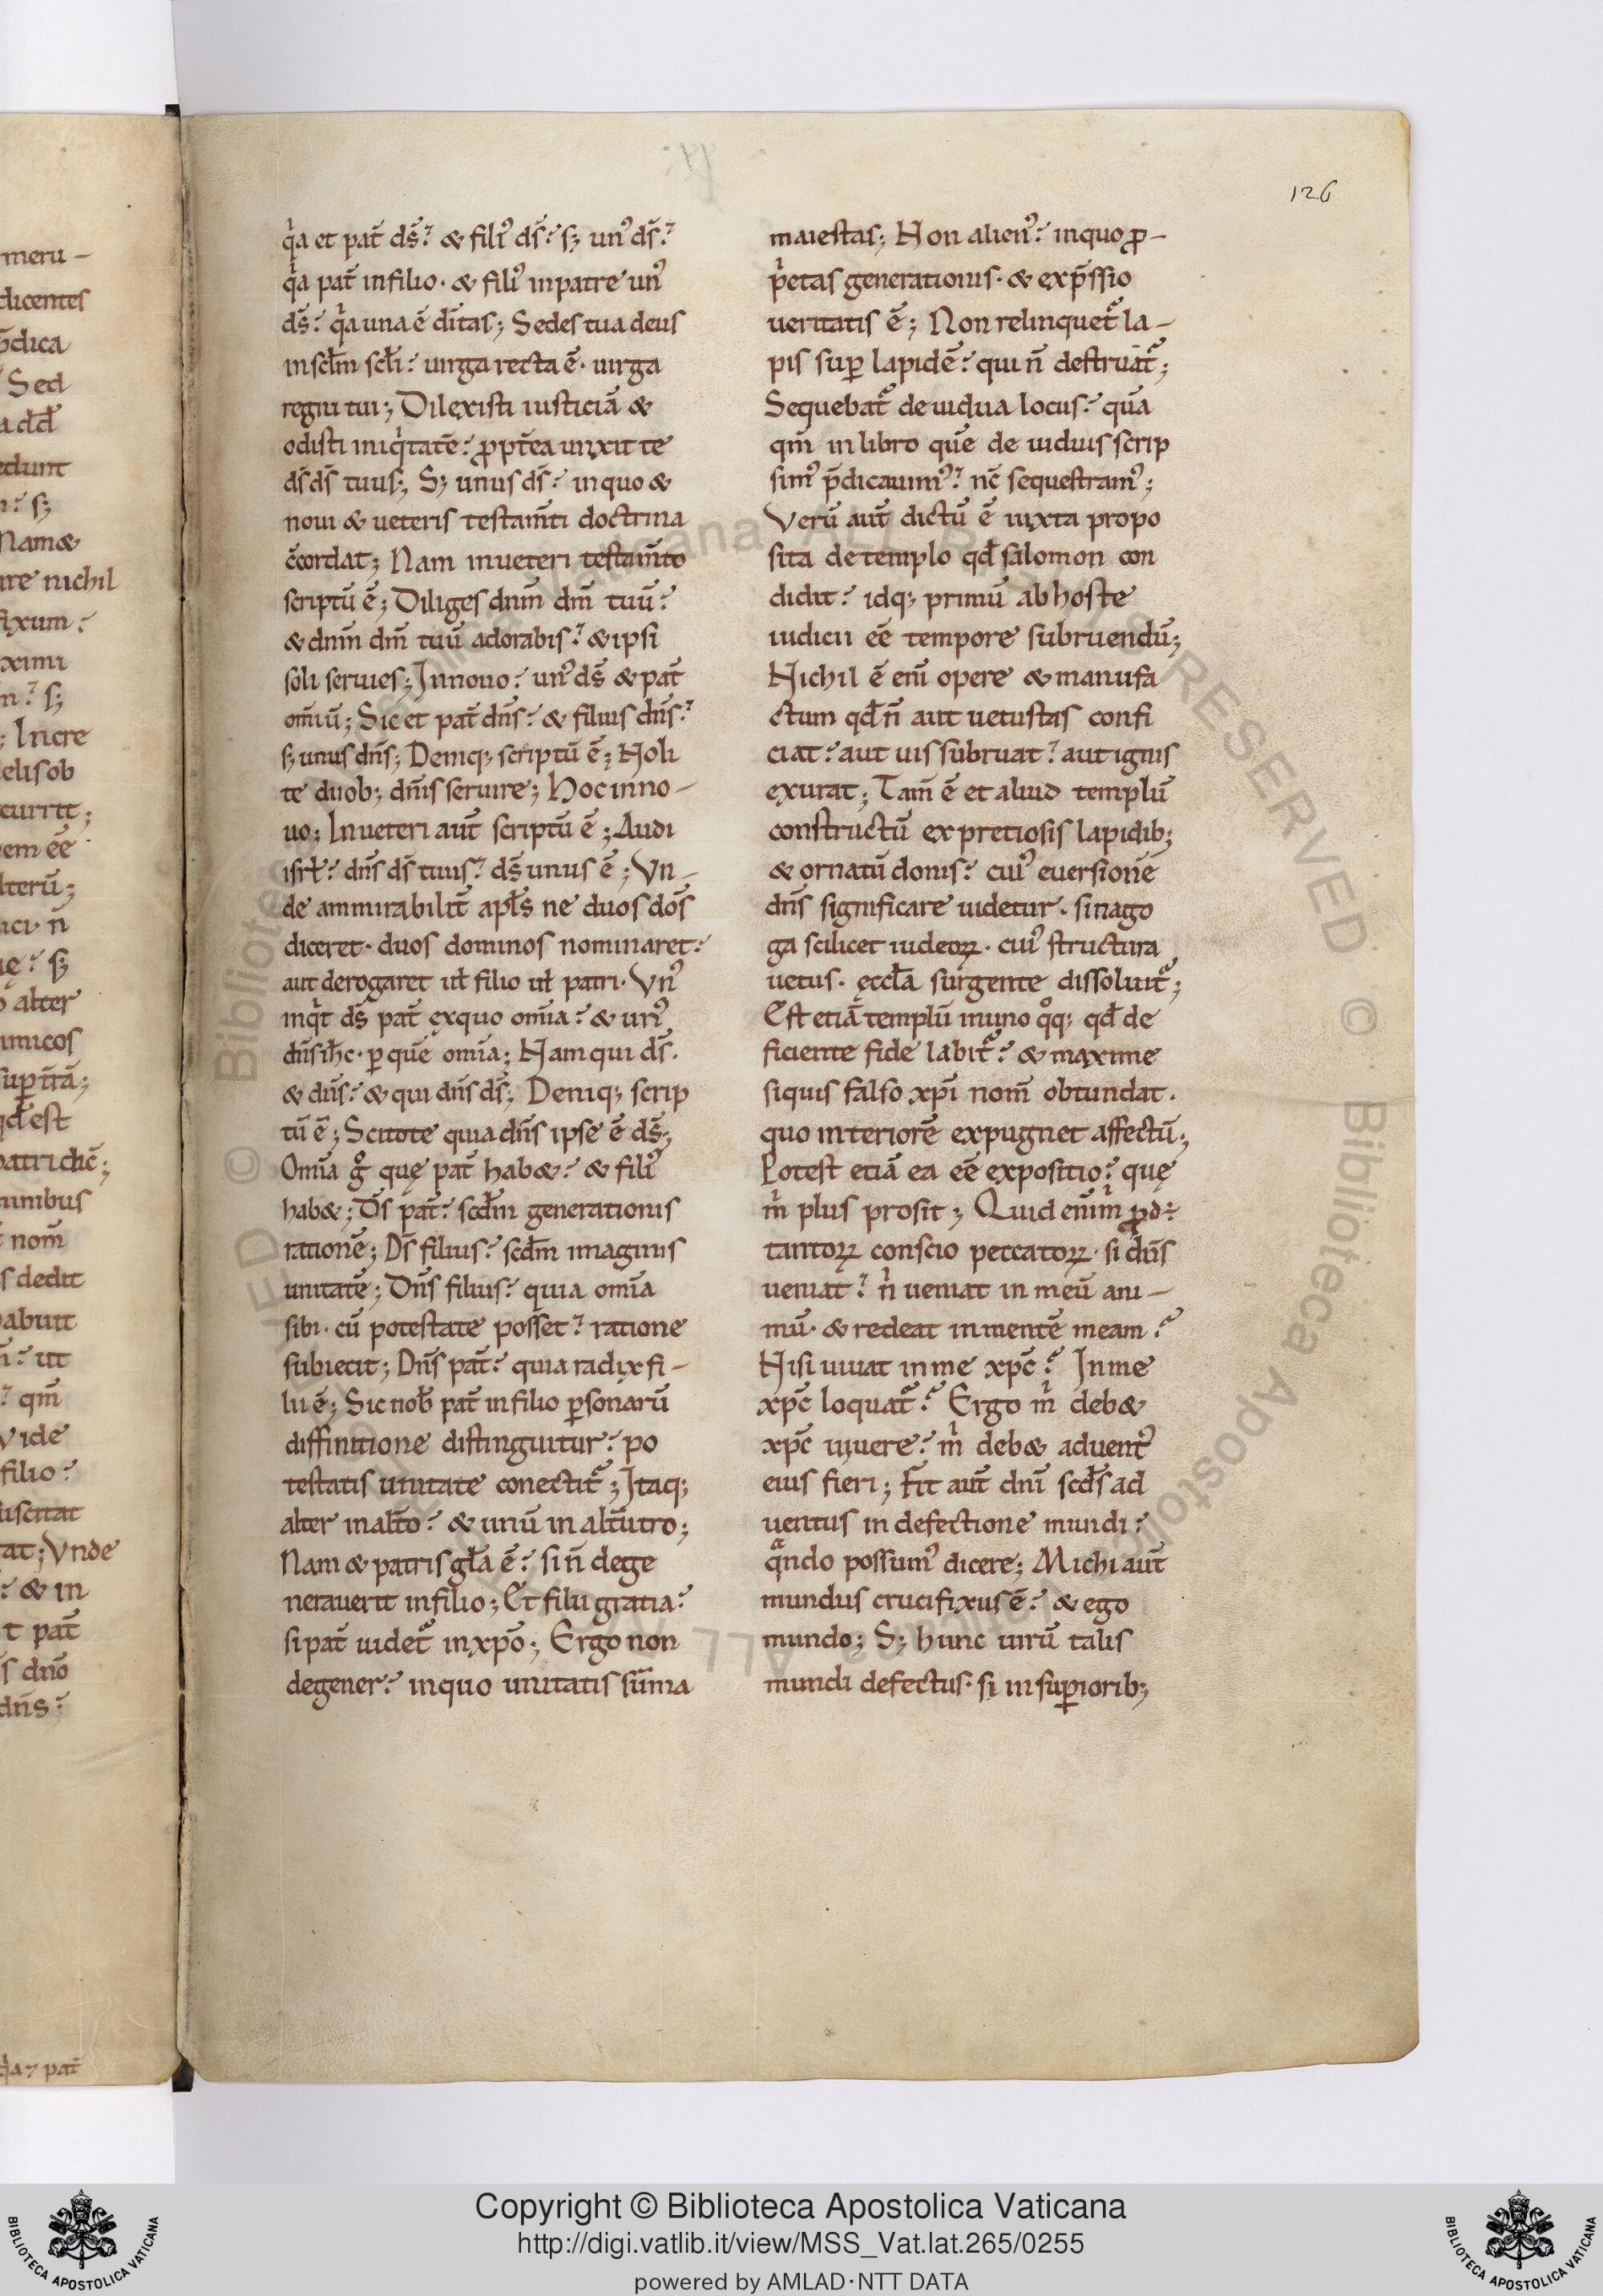 126
q͛a et pat̄ ds̄.᾽ & fili᾽ ds̄.᾽ s; un᾽ ds̄.᾽
q͛a pat̄ infilio · & fili᾽ inpatre un᾽
ds̄.᾽ q͛a una ē dīt̄as; Sedes tua deus
insc̄lm sc̄li.᾽ uirga recta ē · uirga
regni tui; Dilexisti iusticiā &
odisti iniq͛tatē.᾽ ꝓpt̄ea unxit te
ds̄ ds̄ tuus; S; unus ds̄.᾽ inquo &
noui & ueteris testam̄ti doctrina
c̄cordat; Nam inueteri testam̄to
scriptū ē; Diliges dnm̄ dm̄ tuū.᾽
& dnm̄ dm̄ tuū adorabis.᾽ & ipsi
soli seruies; Innouo.᾽ un᾽ ds̄ & pat̄
om̄iū; Sic et pat̄ dn̄s.᾽ & filius dn̄s.᾽
s; unus dn̄s; Deniq; scriptū ē; Noli
te duob; dn̄is seruire; Hoc inno-
uo; Inueteri aut̄ scriptū ē; Audi
isrł.᾽ dn̄s ds̄ tuus.᾽ ds̄ unus ē; Vn-
de ammirabilit̄ apłs ne duos dōs
diceret · duos dominos nominaret.᾽
aut derogaret uł filio uł patri · Vn᾽
inq͛t ds̄ pat̄ exquo om̄ia.᾽ & un᾽
dn̄s ih̄c · ꝑ quē om̄ia; Nam qui ds̄.
& dn̄s.᾽ & qui dn̄s ds̄; Deniq; scrip
tū ē; Scitote quia dn̄s ipse ē ds̄;
Om̄ia gͦ quę pat̄ hab&.᾽ & fili᾽
hab&; Ds̄ pat̄.᾽ scd̄m generationis
rationē; Ds̄ filius.᾽ scd̄m imaginis
unitatē; Dn̄s filius.᾽ quia om̄ia
sibi · cū potestate posset.᾽ ratione
subiecit; Dn̄s pat̄.᾽ quia radix fi-
lii ē; Sic nob̄ pat̄ infilio ꝑsonarū
diffinitione distinguitur.᾽ po
testatis unitate conectit᷑; Itaq;
alter inalt̄o.᾽ & unū in alt̄utro;
Nam & patris gła ē.᾽ si n̄ dege
nerauerit infilio; Et filii gratia.᾽
si pat̄ uidet᷑ inxpō; Ergo non
degener.᾽ inquo unitatis sūma
maiestas; Non alien᾽.᾽ inquo ꝓ-
p͛etas generationis · & exp̄ssio
ueritatis ē; Non relinquet᷑ la-
pis suꝑ lapidē.᾽ qui n̄ destruat᷑;
Sequebat᷑ deuidua locus.᾽ quā
qm̄ inlibro quē de uiduis scrip
sim᾽ p̄dicauim᾽.᾽ nc̄ sequestram᾽;
Verū aut̄ dictū ē iuxta propo
sita detemplo qd̄ salomon con
didit.᾽ idq; primū ab hoste
iudicii ēē tempore subruendū;
Nichil ē eni᷒ opere & manufa
ctum qd̄ n̄ aut uetustas confi
ciat.᾽ aut uis subruat.᾽ aut ignis
exurat; Tam̄ ē et aliud templū
constructū expretiosis lapidib;
& ornatū donis.᾽ cui᾽ euersionē
dn̄s significare uidetur · sinago
ga scilicet iudeoꝝ · cui᾽ structura
uetus · ęccła surgente dissoluit᷑;
Est etiā templū inuno qͦq; qd̄ de
ficiente fide labit᷑.᾽ & maxime
siquis falso xpi᷒ nom̄ obtundat.
quo interiorē expugnet affectū;
Potest etiā ea ēē expositio.᾽ quę
m͛ plus prosit; Quid enim m͛ ꝓd÷
tantoꝝ conscio peccatoꝝ · si dn̄s
ueniat.᾽ n͛ ueniat in meū ani-
mū · & redeat inmentē meam.᾽
Nisi uiuat inme xpc̄.᾽ Inme
xpc̄ loquat᷑.᾽ Ergo m͛ deb&
xpc̄ uiuere.᾽ m͛ deb& aduent᾽
eius fieri; Fit aut̄ dn̄i scd̄s ad
uentus in defectione mundi.᾽
qᷓndo possum᾽ dicere; Michi aut̄
mundus crucifixus ē.᾽ & ego
mundo; S; hunc uirū talis
mundi defectus · si insuꝑiorib;
Copyright © Biblioteca Apostolica Vaticana
http://digi.vatlib.it/view/MSS_Vat.lat.265/0255
powered by AMLAD·NTT DATA
BIBLIOTECA APOSTOLICA VATICANA
BIBLIOTECA APOSTOLICA VATICANA